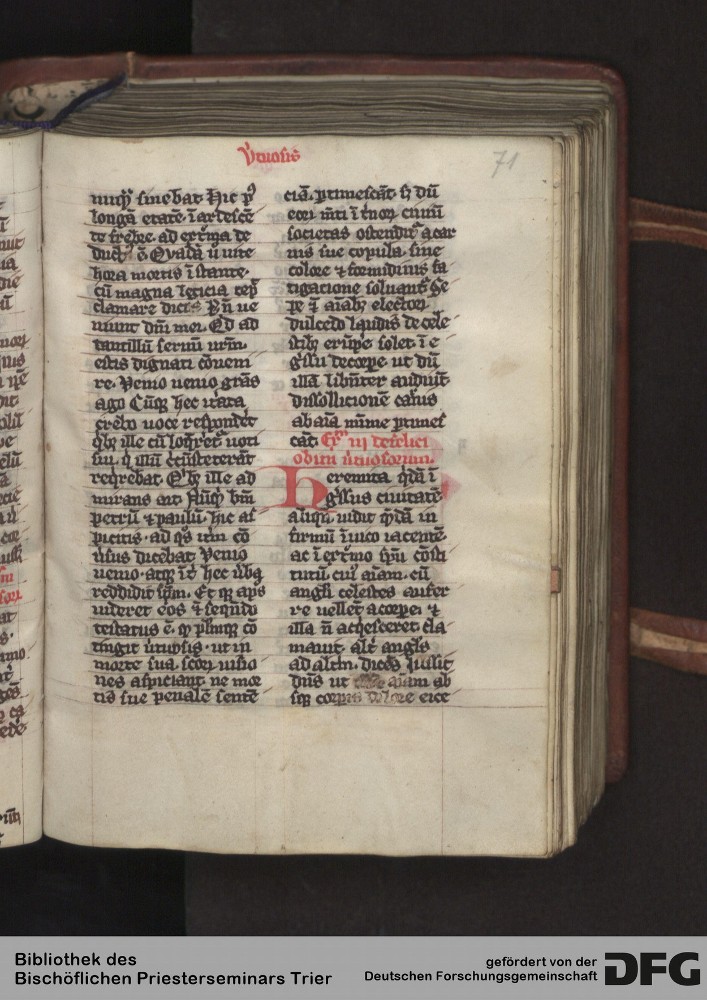 Vtuosis
71
nuqȝ sinebat Hic pꝰ
longā etatē ī ardescē
te febre ad extᵉma de
ductꝰ ē Quadā ū nite
hora mortis īstante
cū magna leticia cep̄
clamare dicēs Eñ ue
niunt dn̄i mei Qd ad
tantillū seruū urm̄
estis dignati cōueni
re Venio uenio grās
ago Cūqȝ hec itata
crebro uoce responder̄
ab ille cū loq̄ret uoti
sui q̄ illū cͥcūsteterāt
reqrebāt Qͥb ille ad
mirans ait Nūqͥ hūc
petrū ⁊ paulū hic as
picitis ad qͦs itm̄ cō
ūsus dicebat Venio
uenio atqȝ īt hec ūba
reddidit spm̄ Et qȝ apͦs
uideret eos ⁊ seqndo
testatus ē qͥ plūqȝ cō
tingit ūtuosis ut in
morte sua scoȝ uisio
nes aspiciant ne mor
tis sue penalē sentē
ciā ptimescāt sȝ dū
eoȝ mti ītnoȝ ciuiū
societas ostendit a car
nis sue copula sine
colore ⁊ formidinis fa
tigacione soluant Se
pe ī aīabȝ electoȝ
dulcedo laudis de cele
stibȝ erūpe solet ī e
gssu decorpe ut dū
illā libntē audiūt
dissolucionē carnis
ab aīa mīme ptimes
cāt Exᵐ iij de felici
obitu ūtuosorum
Heremita qͥdā ī
gssus ciuitatē
aliqͣ uidit qͥdā in
firmū ī uico iacentē
ac ī extᵉmo spū cōsti
tutū cuiꝰ aīam cū
angli celestes aufer
re uellēt a corpe ⁊
illa n̄ acqͥesceret cla
mauit alt anglꝰ
ad altm̄ dicēs Iussit
dn̄s ut aīam ab
sqȝ corpis dolore eice
Bibliothek des
Bischöflichen Priesterseminars Trier
gefördert von der
Deutschen Forschungsgemeinschaft
DFG